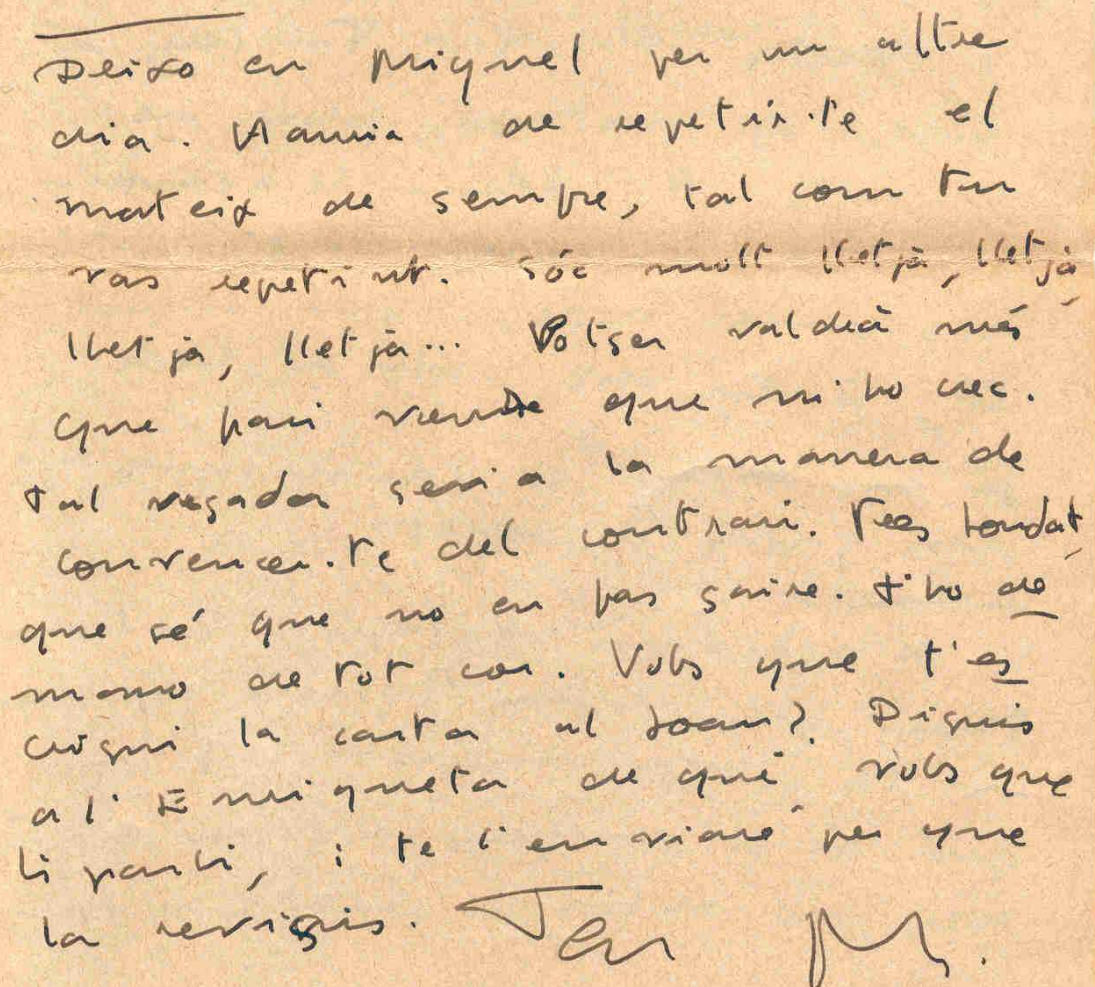 Deixo en Miquel per un altre
dia. Hauria de repetir-te el
mateix de sempre, tal com tu
vas repetint. Sóc molt lletjà, lletjà,
lletjà, lletjà... Potser valdrà més
que faci veure que m'ho crec.
Tal vegada seria la manera de
convencer-te del contrari. Fes bondat,
que sé que no en fas gaire. T'ho de
mano de tot cor. Vols que t'es
crigui la carta al Joan? Diguis
a l'Enriqueta de què vols que
li parli, i te l'enviaré per que
la revisis. Teu M.